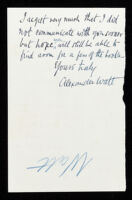 I regret very much that I did
not communicate with you sooner
but hope, will still be able to
find room for a few of the books.
Yours truly
Alexander Watt
Watt